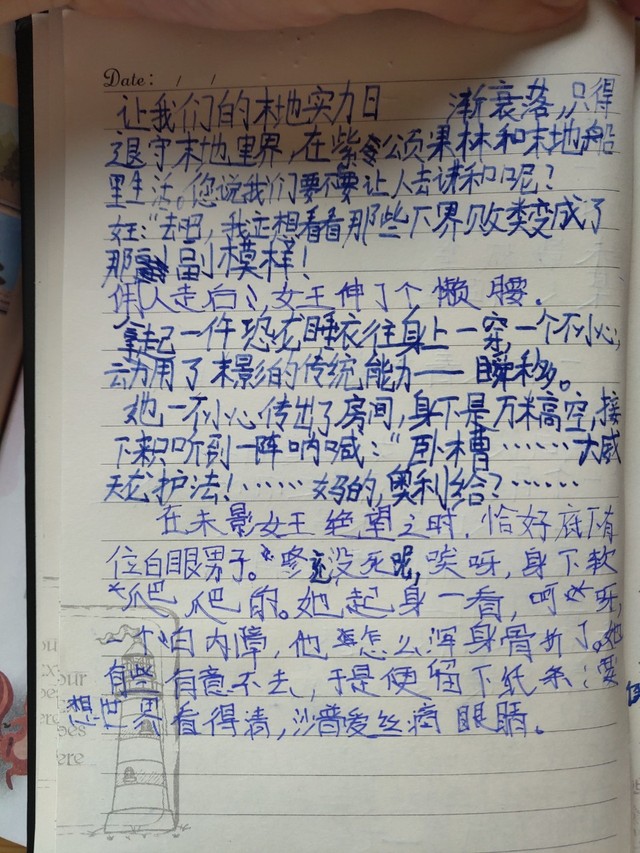 Date: / /
让我们的末地实力日 渐衰落,只得
退守末地里界,在紫颂果林和末地船
里生活。您说我们要不要让人去讲和呢?
女王:“去吧,我正想看看那些下界败类变成了
那副模样!
佣人走后,女王伸了个懒腰.
拿起一件恐龙睡衣往身上一穿,一个不小心,
动用了末影的传统能力——瞬移。
她一不小心传出了房间,身下是万米高空,接
下来听到一阵呐喊:“卧槽……大威
天龙护法!……妈的,奥利给?……
在末影女王绝望之时,恰好底下有
位白眼男子。“咚”没死呢,唉呀,身下软
爬爬的。她起身一看,呵呀,
一个白内障,他怎么浑身骨折了。她
有些有意不去,于是便留下纸条:要
想世界看得清,沙普爱丝滴眼睛。
our